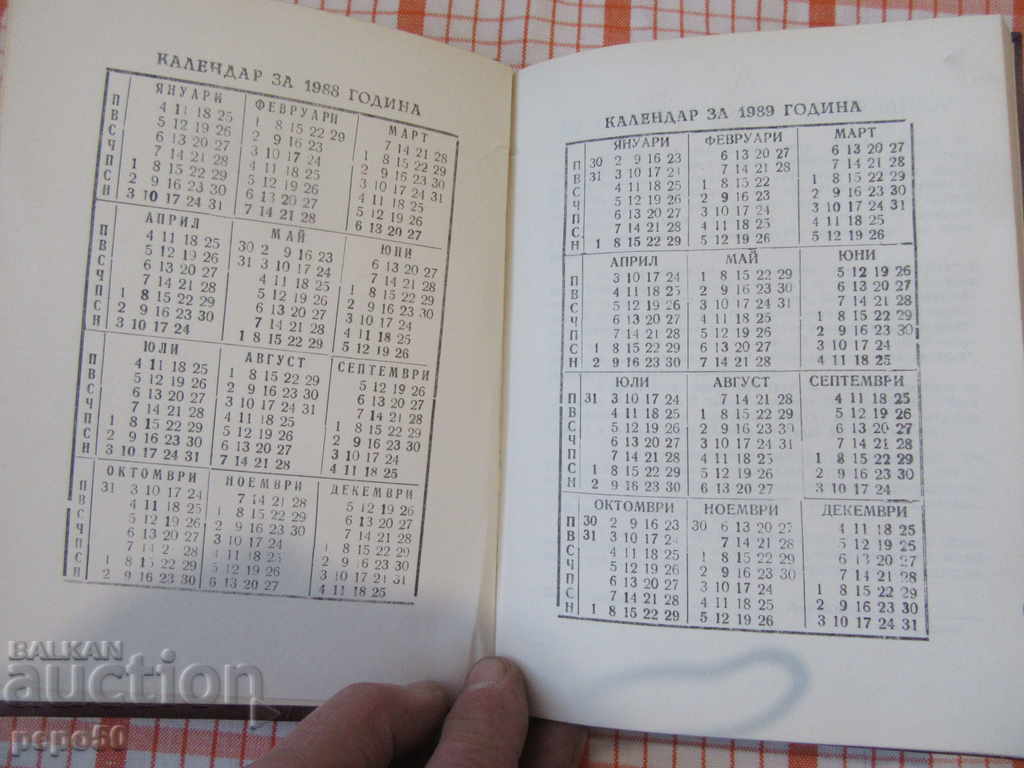 КАЛЕНДАР ЗА 1988 ГОДИНА
ЯНУАРИ ФЕВРУАРИ МАРТ
П 4 11 18 25 1 8 15 22 29 7 14 21 28
В 5 12 19 26 2 9 16 23 1 8 15 22 29
С 6 13 20 27 3 10 17 24 2 9 16 23 30
Ч 7 14 21 28 4 11 18 25 3 10 17 24 31
П 1 8 15 22 29 5 12 19 26 4 11 18 25
С 2 9 16 23 30 6 13 20 27 5 12 19 26
Н 3 10 17 24 31 7 14 21 28 6 13 20 27
АПРИЛ МАЙ ЮНИ
П 4 11 18 25 30 2 9 16 23 6 13 20 27
В 5 12 19 26 31 3 10 17 24 7 14 21 28
С 6 13 20 27 4 11 18 25 1 8 15 22 29
Ч 7 14 21 28 5 12 19 26 2 9 16 23 30
П 1 8 15 22 29 6 13 20 27 3 10 17 24
С 2 9 16 23 30 7 14 21 28 4 11 18 25
Н 3 10 17 24 1 8 15 22 29 5 12 19 26
ЮЛИ АВГУСТ СЕПТЕМВРИ
П 4 11 18 25 1 8 15 22 29 5 12 19 26
В 5 12 19 26 2 9 16 23 30 6 13 20 27
С 6 13 20 27 3 10 17 24 31 7 14 21 28
Ч 7 14 21 28 4 11 18 25 1 8 15 22 29
П 1 8 15 22 29 5 12 19 26 2 9 16 23 30
С 2 9 16 23 30 6 13 20 27 3 10 17 24
Н 3 10 17 24 31 7 14 21 28 4 11 18 25
ОКТОМВРИ НОЕМВРИ ДЕКЕМВРИ
П 31 3 10 17 24 7 14 21 28 5 12 19 26
В 4 11 18 25 1 8 15 22 29 6 13 20 27
С 5 12 19 26 2 9 16 23 30 7 14 21 28
Ч 6 13 20 27 3 10 17 24 1 8 15 22 29
П 7 14 2 28 4 11 18 25 2 9 16 23 30
С 1 8 15 22 29 5 12 19 26 3 10 17 24 31
Н 2 9 16 23 30 6 13 20 27 4 11 18 25
КАЛЕНДАР ЗА 1989 ГОДИНА
ЯНУАРИ ФЕВРУАРИ МАРТ
П 30 2 9 16 23 6 13 20 27 6 13 20 27
В 31 3 10 17 24 7 14 21 28 7 14 21 28
С 4 11 18 25 1 8 15 22 1 8 15 22 29
Ч 5 12 19 26 2 9 16 23 2 9 16 23 30
П 6 13 20 27 3 10 17 24 3 10 17 24 31
С 7 14 21 28 4 11 18 25 4 11 18 25
Н 1 8 15 22 29 5 12 19 26 5 12 19 26
АПРИЛ МАЙ ЮНИ
П 3 10 17 24 1 8 15 22 29 5 12 19 26
В 4 11 18 25 2 9 16 23 30 6 13 20 27
С 5 12 19 26 3 10 17 24 31 7 14 21 28
Ч 6 13 20 27 4 11 18 25 1 8 15 22 29
П 7 14 21 28 5 12 19 26 2 9 16 23 30
С 1 8 15 22 29 6 13 20 27 3 10 17 24
Н 2 9 16 23 30 7 14 21 28 4 11 18 25
ЮЛИ АВГУСТ СЕПТЕМВРИ
П 31 3 10 17 24 7 14 21 28 4 11 18 25
В 4 11 18 25 1 8 15 22 29 5 12 19 26
С 5 12 19 26 2 9 16 23 30 6 13 20 27
Ч 6 13 20 27 3 10 17 24 31 7 14 21 28
П 7 14 21 28 4 11 18 25 1 8 15 22 29
С 1 8 15 22 29 5 12 19 26 2 9 16 23 30
Н 2 9 16 23 30 6 13 20 27 3 10 17 24
ОКТОМВРИ НОЕМВРИ ДЕКЕМВРИ
П 30 2 9 16 23 30 6 13 20 27 4 11 18 25
В 31 3 10 17 24 7 14 21 28 5 12 19 26
С 4 11 18 25 1 8 15 22 29 6 13 20 27
Ч 5 12 19 26 2 9 16 23 30 7 14 21 28
П 6 13 20 27 3 10 17 24 1 8 15 22 29
С 7 14 21 28 4 11 18 25 2 9 16 23 30
Н 1 8 15 22 29 5 12 19 26 3 10 17 24 31
BALKAN
auction
pepo50